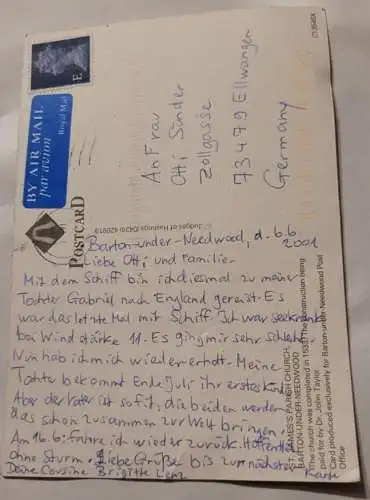 E
BY AIR MAIL
par avion
Royal Mail
POSTCARD
© Judges of Hastings (0424) 420919
C13945X
An Frau
Otti Sünder
Zollgasse
73479 Ellwangen
Germany
Barton-under-Needwood, d. 6.6
2001
Liebe Otti und Familie.
Mit dem Schiff bin ich diesmal zu meine
Tochter Gabriel nach England gereist. Es
war das letzte Mal mit Schiff. Ich war seekrank
bei Windstärke 11. Es ging mir sehr schlecht
Nun hab ich mich wieder erholt. Meine
Tochter bekommt Ende Juli ihr erstes Kind
Aber der Vater ist so fit, die beiden werden
das schon zusammen zur Welt bringen.
Am 16.6. fahre ich wieder zurück. Hoffentlich
ohne Sturm. Liebe Grüße bis zur nächsten
Karte
Deine Cousine Brigitte
ST. JAMES'S PARISH CHURCH,
BARTON-UNDER-NEEDWOOD
This church was completed in 1533. The construction being
paid for by Dr. John Taylor
Card produced exclusively for Barton-under-Needwood Post
Office